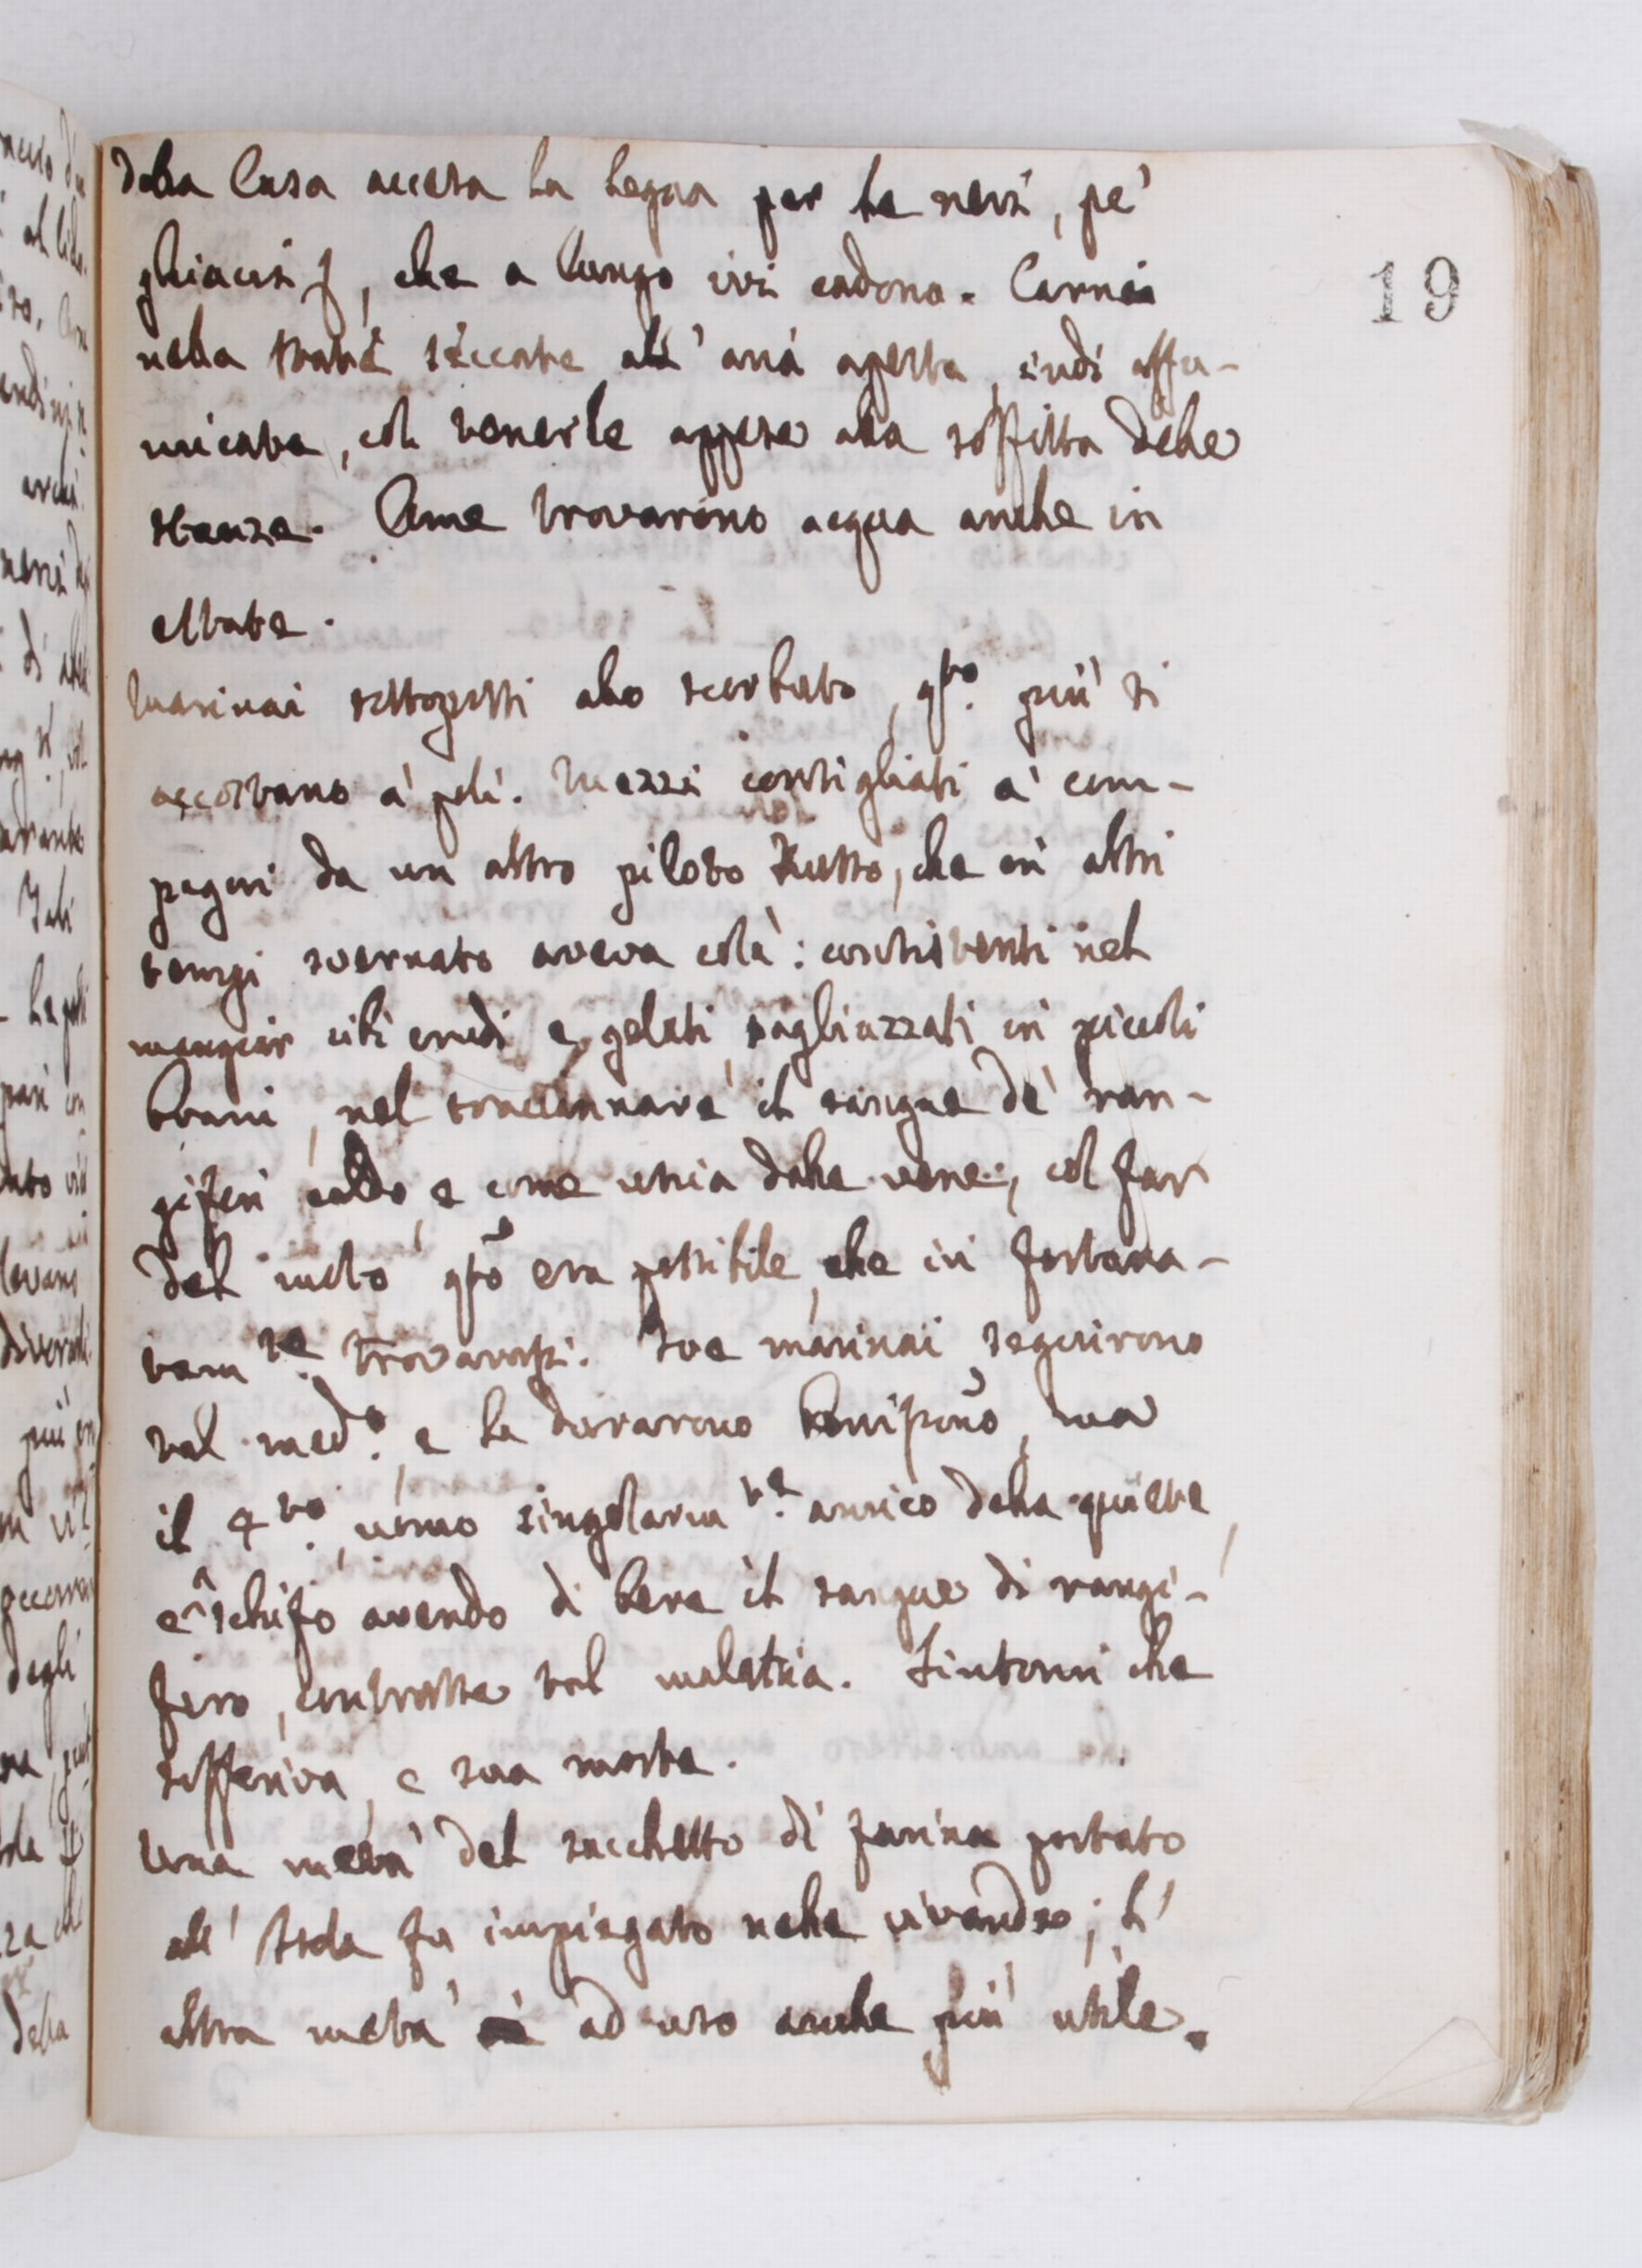 della Casa accesa la legna per le nevi, pe'
ghiacci, che a lungo ivi cadono. Carni
nella state seccate all' aria aperta, indi affu-
micate, col tenerle appese alla soffitta delle
stanze. Come trovarono acqua anche in
estate.
Marinai sottoposti allo scorbuto, qto. più si
accostano a' poli. Mezzi consigliati a' com-
pagni da un altro piloto Russo, che in altri
tempi svernato aveva colà: consistenti nel
mangiar cibi crudi e gelati tagliuzzati in piccoli
brani, nel tracannare il sangue de' ran-
giferi caldo e come uscia dalle vene, col far
del moto qto era possibile, che in fortuna-
tam te. trovavasi. Due marinai seguirono
tal med.o, e la durarono benipmo, ma
il 4to. uomo singolarm te. amico della quiete,
e schifo avendo di bere il sangue di rangi-
fero, contrasse tal malatia. Sintomi che
sofferiva, e sua morte.
Una metà del sacchetto di farina portato
all' Isola fu impiegato nelle vivande; l'
altra metà ad uso anche più utile.
19